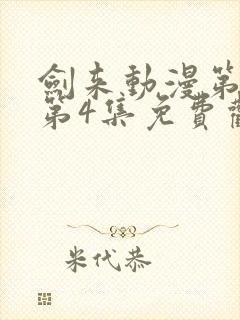 劍来動漫第
第4集免費
米代恭